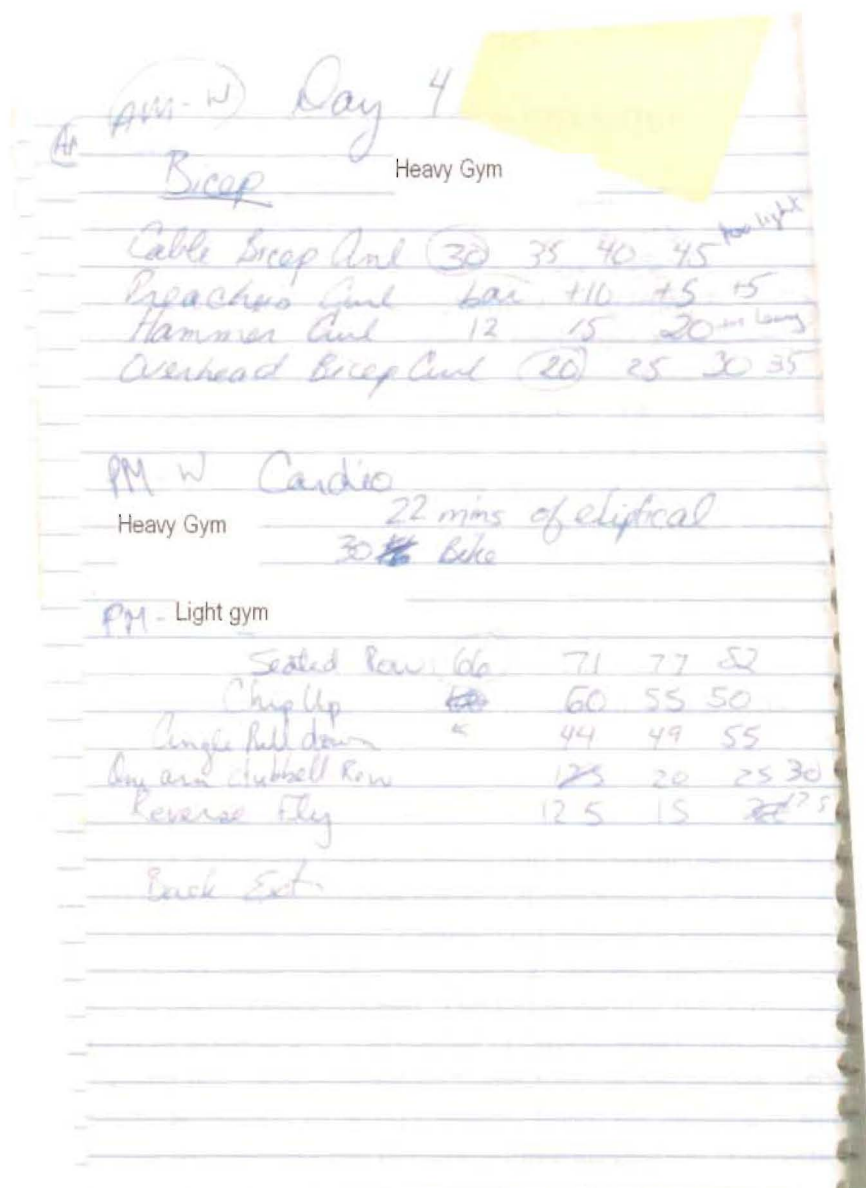 AM-W Day 4
Bicep Heavy Gym
Cable Bicep Curl 30 35 40 45 too light
Preachers Curl bar +10 +5 +5
Hammer Curl 12 15 20
Overhead Bicep Curl 20 25 30 35
PM W Cardio
Heavy Gym 22 mins of eliptical
30 Bike
PM - Light gym
Seated Row 66 71 77 82
Chip Up 60 55 50
Angle Pull down 44 49 55
One arm dubbell Row 20 25 30
Reverse Fly 12 5 15 17 5
Back Ext.